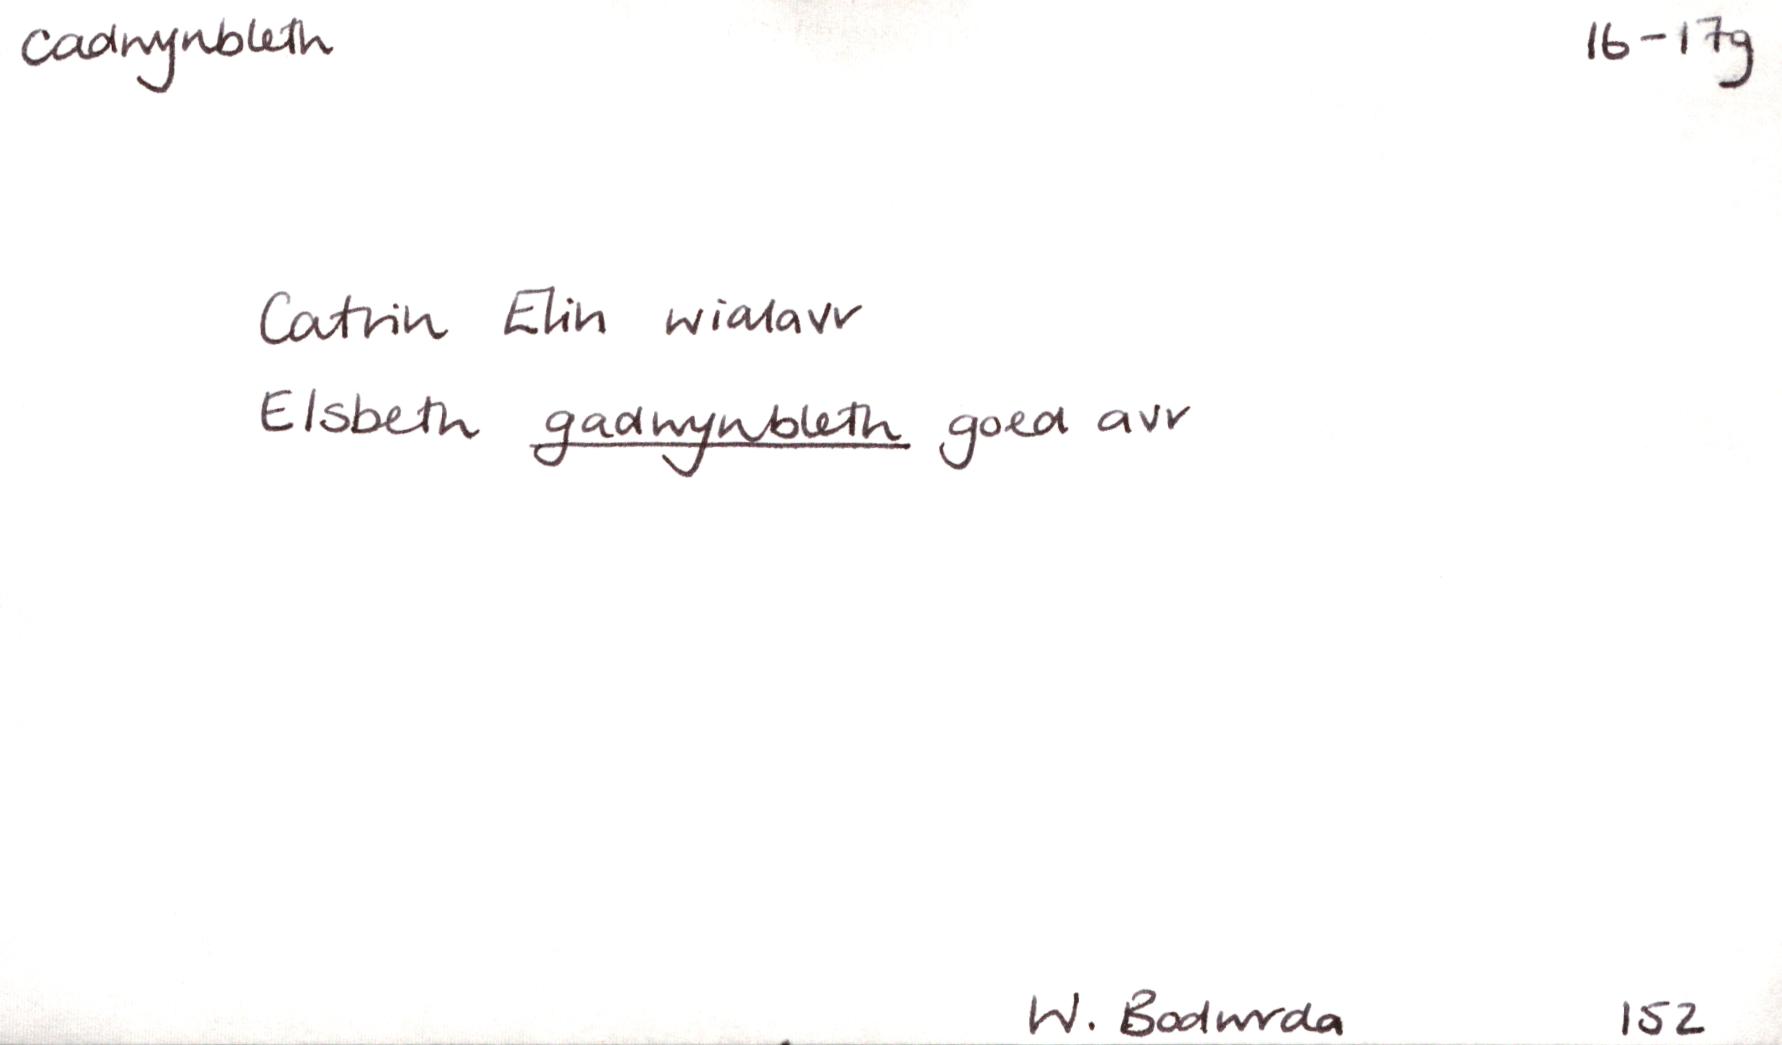 cadwynbleth 16-17g
Catrin Elin wialavr
Elsbeth gadwynbleth goed avr
W. Bodwrda 152